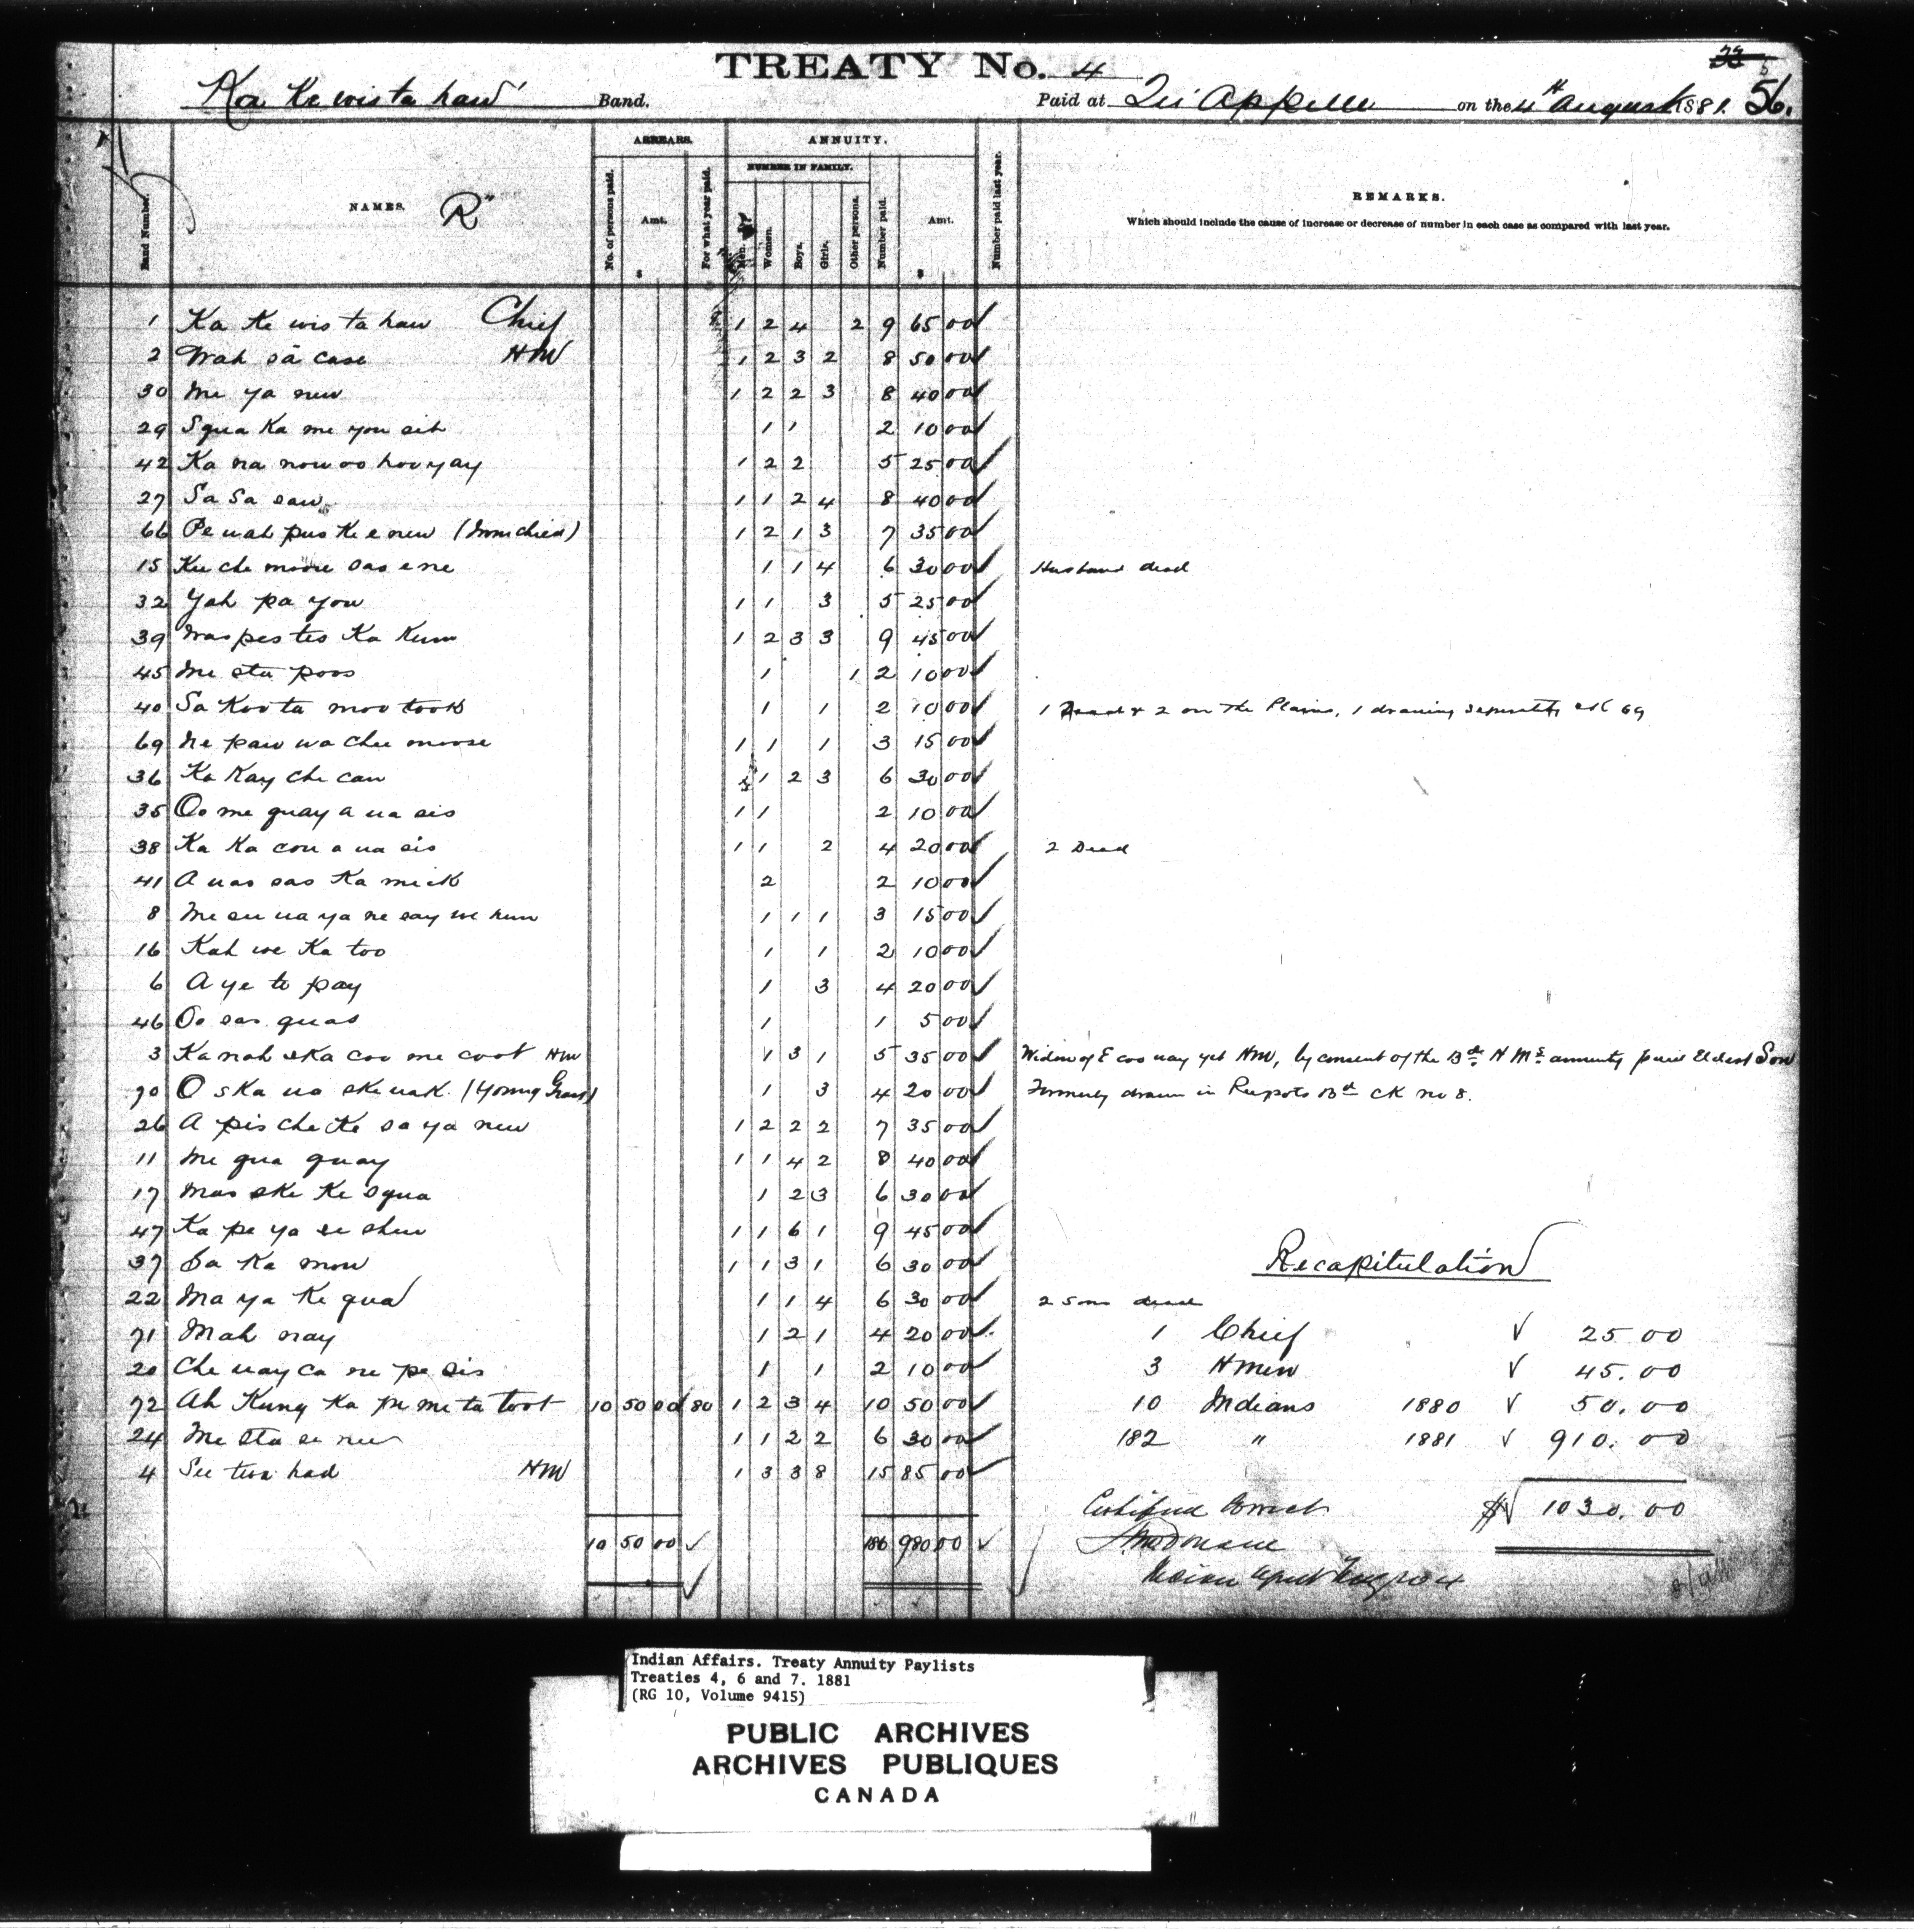 TREATY No. 4
Ka Ke wis ta haw Band. Paid at Qu'Appelle on the 4th August 1881. 56.
ARREARS. ANNUITY.
NUMBER IN FAMILY.
Band Number. NAMES. "R" No. of persons paid. Amt. $ For what year paid. Men. Women. Boys. Girls. Other persons. Number paid. Amt. $ Number paid last year. REMARKS.
Which should include the cause of increase or decrease of number in each case as compared with last year.
1 Ka Ke wis ta haw Chief 1 2 4 2 9 65 00
2 Wah sā case HM 1 2 3 2 8 50 00
30 Me ya new 1 2 2 3 8 40 00
29 Squa Ka me you sit 1 1 2 10 00
42 Ka na now oo hoo yay 1 2 2 5 25 00
27 Sa Sa saw 1 1 2 4 8 40 00
66 Pe wah pus Ke e new (Iron child) 1 2 1 3 7 35 00
15 Kee che moose oas e ne 1 1 4 6 30 00 Husband dead
32 Yah pa you 1 1 3 5 25 00
39 Was pes tes Ka Kum 1 2 3 3 9 45 00
45 Me sta poos 1 1 2 10 00
40 Sa Koo ta moo took 1 1 2 10 00 1 Dead & 2 on the Plains, 1 drawing separately ck 69
69 Ne paw wa chee moose 1 1 1 3 15 00
36 Ka Kay che caw 1 1 2 3 6 30 00
35 Oo me quay a wa sis 1 1 2 10 00
38 Ka Ka cou a wa sis 1 1 2 4 20 00 2 Dead
41 A was sas Ka mick 2 2 10 00
8 Me see wa ya ne say we hum 1 1 1 3 15 00
16 Kah we Ka too 1 1 2 10 00
6 A ye te pay 1 3 4 20 00
46 Oo sas quas 1 1 5 00
3 Ka nah ska coo me coot HM 1 3 1 5 35 00 Widow of E coo way yet HM, by consent of the Bd H Ms annuity paid Eldest Son
70 O ska wa ske wak (Young Grass) 1 3 4 20 00 Formerly drawn in Bd CK no 8.
26 A pis che Ke sa ya new 1 2 2 2 7 35 00
11 Me qua quay 1 1 4 2 8 40 00
17 Mas ske Ke squa 1 2 3 6 30 00
47 Ka pe ya se shew 1 1 6 1 9 45 00
37 Sa Ka mow 1 1 3 1 6 30 00
22 Ma ya Ke qua 1 1 4 6 30 00 2 Sons dead
71 Mah nay 1 2 1 4 20 00
20 Che way ca ne pe sis 1 1 2 10 00
72 Ah Kung Ka pe me ta toot 10 50 00 80 1 2 3 4 10 50 00
24 Me sta se new 1 1 2 2 6 30 00
4 See twa had HM 1 3 3 8 15 85 00
10 50 00 186 980 00
Recapitulation
1 Chief 25.00
3 HMen 45.00
10 Indians 1880 50.00
182 " 1881 910.00
$ 1030.00
Certified Correct
Indian Agent Treaty No 4
Indian Affairs. Treaty Annuity Paylists
Treaties 4, 6 and 7. 1881
(RG 10, Volume 9415)
PUBLIC ARCHIVES
ARCHIVES PUBLIQUES
CANADA